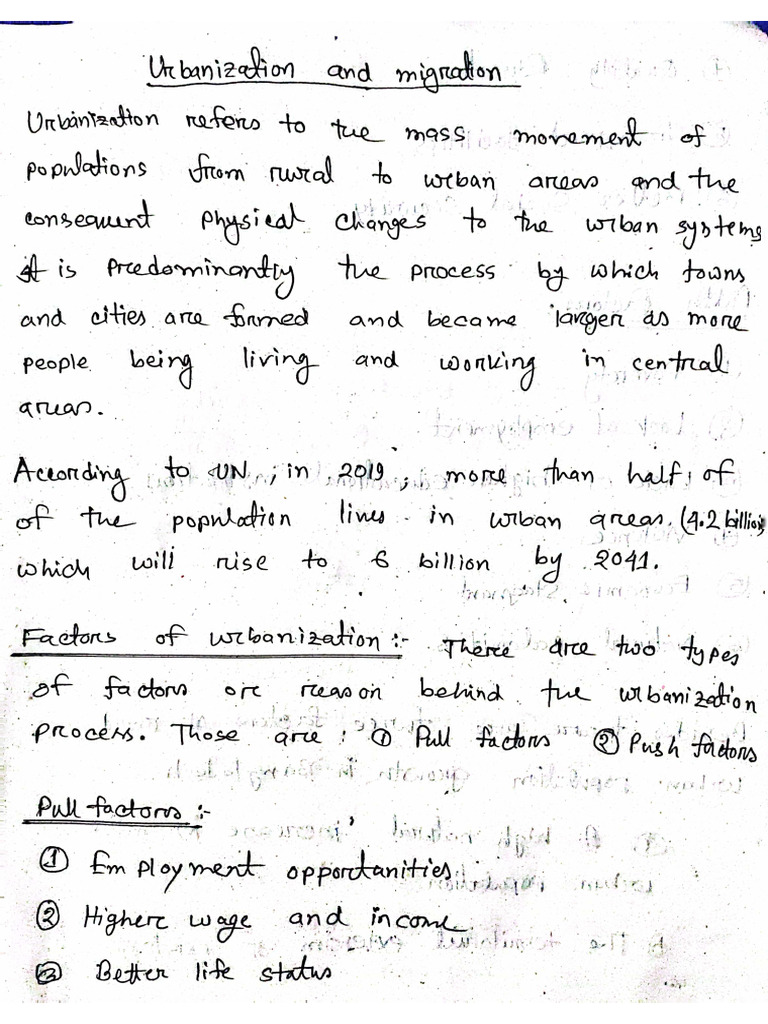 Urbanization and migration
Urbanization refers to the mass movement of
populations from rural to urban areas and the
consequent physical changes to the urban systems
It is predominantly the process by which towns
and cities are formed and became larger as more
people being living and working in central
areas.
According to UN, in 2019, more than half of
of the population lives in urban areas. (4.2 billion)
which will rise to 6 billion by 2041.
Factors of urbanization :- There are two types
of factors or reason behind the urbanization
process. Those are: ① Pull factors ② Push factors
Pull factors :-
① Employment opportanities
② Higher wage and income
③ Better life status